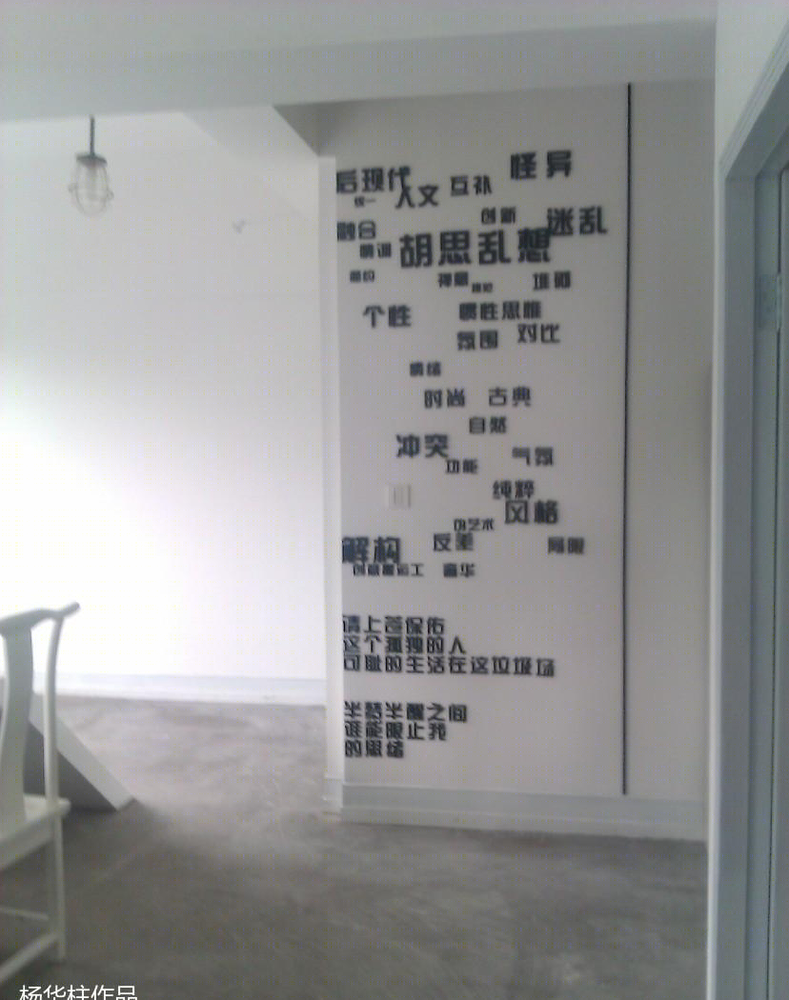 怪异
后现代
人文
互补
统一
创新
迷乱
融合
情调
胡思乱想
堆砌
个性
惯性思维
氛围
对比
情绪
时尚
古典
自然
冲突
功能
气氛
纯粹
风格
伪艺术
反差
局限
解构
创意搬运工
奢华
请上苍保佑
这个孤独的人
可耻的生活在这垃圾场
半梦半醒之间
谁能限止我
的思绪
杨华柱作品